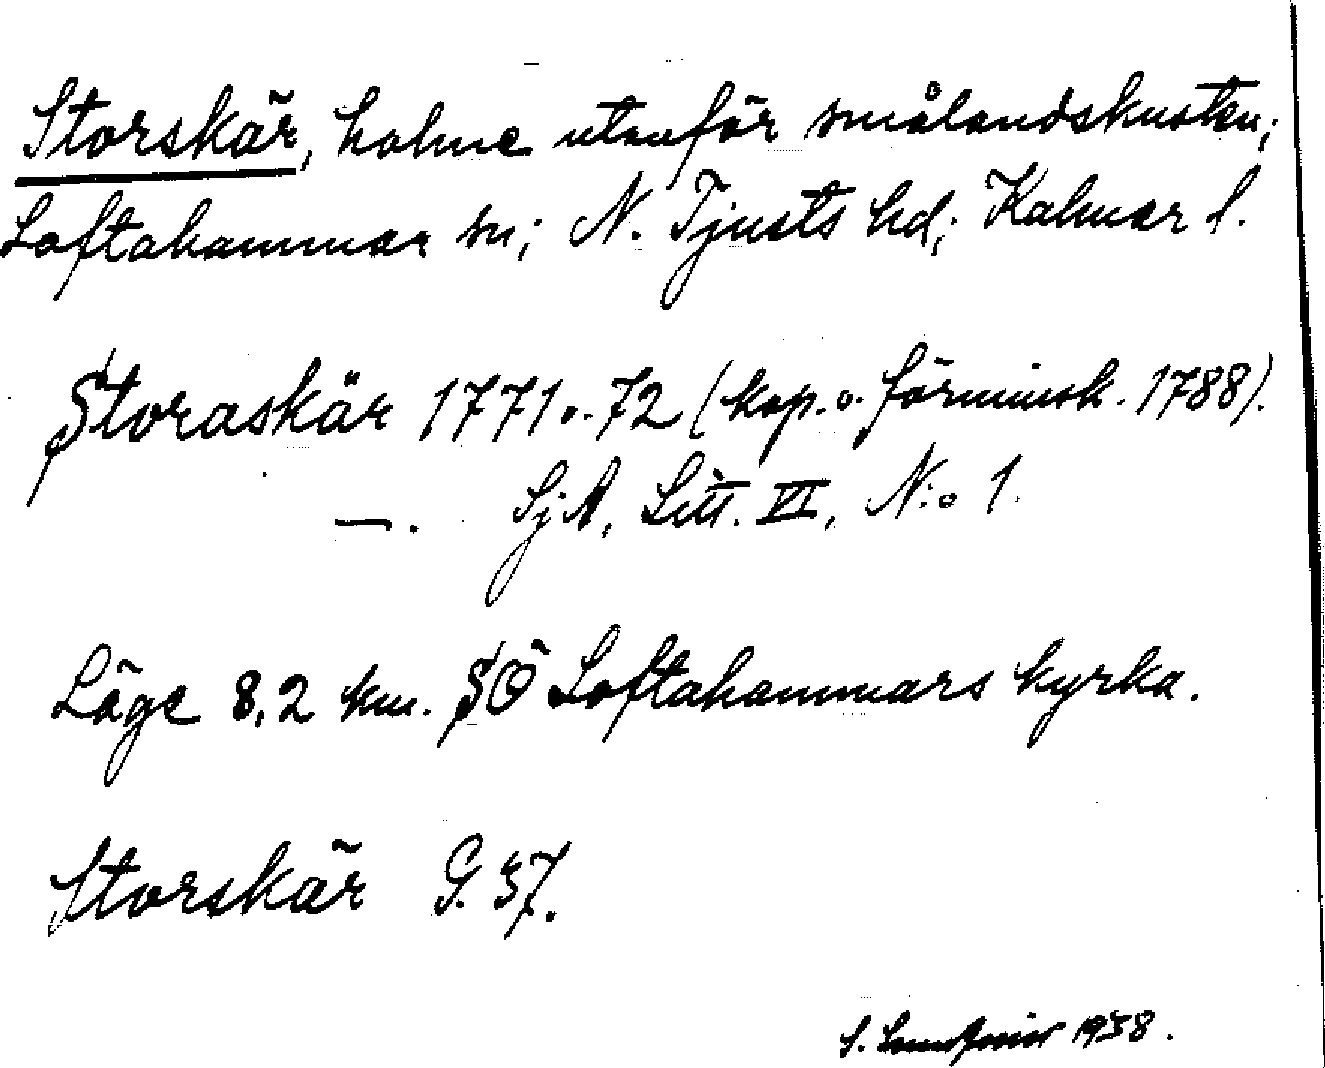 Storskär, holme utanför smålandskusten;
Loftahammar sn; N. Tjusts hd; Kalmar l.
Storaskär 1771 o. 72 (kop. o. förminsk. 1788).
—. SjA, Litt. VI, N:o 1.
Läge 8,2 km. SÖ Loftahammars kyrka.
Storskär G. 37.
S. 1938.